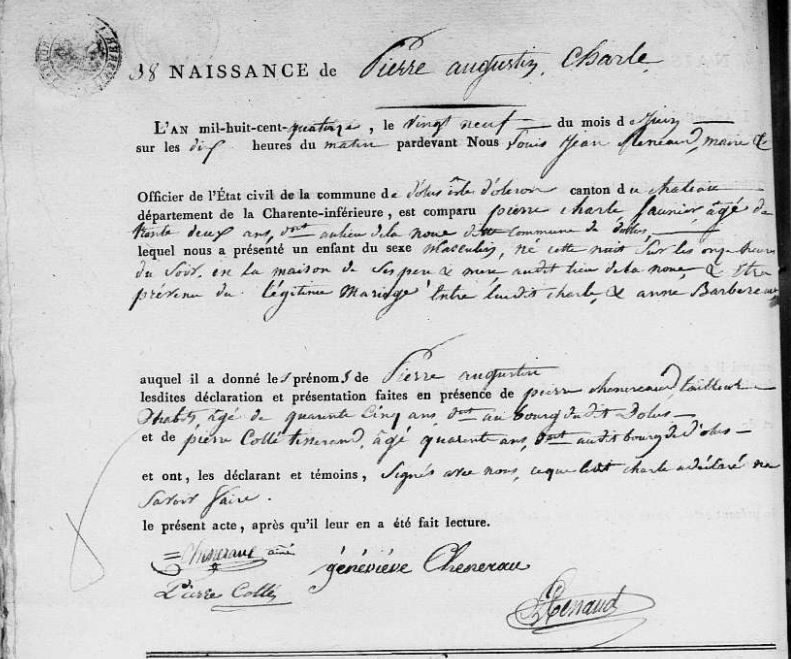 38 NAISSANCE de Pierre augustin Charle
L'AN mil-huit-cent-quatorze, le vingt neuf du mois de Juin
sur les dix heures du matin pardevant Nous Louis Jean Renaud, maire &
Officier de l'État civil de la commune de dolus isle d'oleron canton du chateau
département de la Charente-inférieure, est comparu pierre charle saunier âgé de
trente deux ans, dmt au lieu de la noue commune de dolus,
lequel nous a présenté un enfant du sexe Masculin, né cette nuit sur les onze heures
du soir, en la maison de ses pere & mere audit lieu de la noue & être
provenu du légitime Mariage Entre ledit charle, & anne Barbereau
auquel il a donné les prénoms de Pierre augustin
lesdites déclaration et présentation faites en présence de pierre chenereau tailleur
d'habits âgé de quarente cinq ans, dmt au bourg dudit Dolus
et de pierre Collé tisserand, âgé quarente ans, dmt audit bourg de D'olus
et ont, les déclarant et témoins, signés avec nous, ce que ledit charle a déclaré ne
savoir faire.
le présent acte, après qu'il leur en a été fait lecture.
Chenerau ainé geneviève Chenerau
Pierre Collé
Renaud